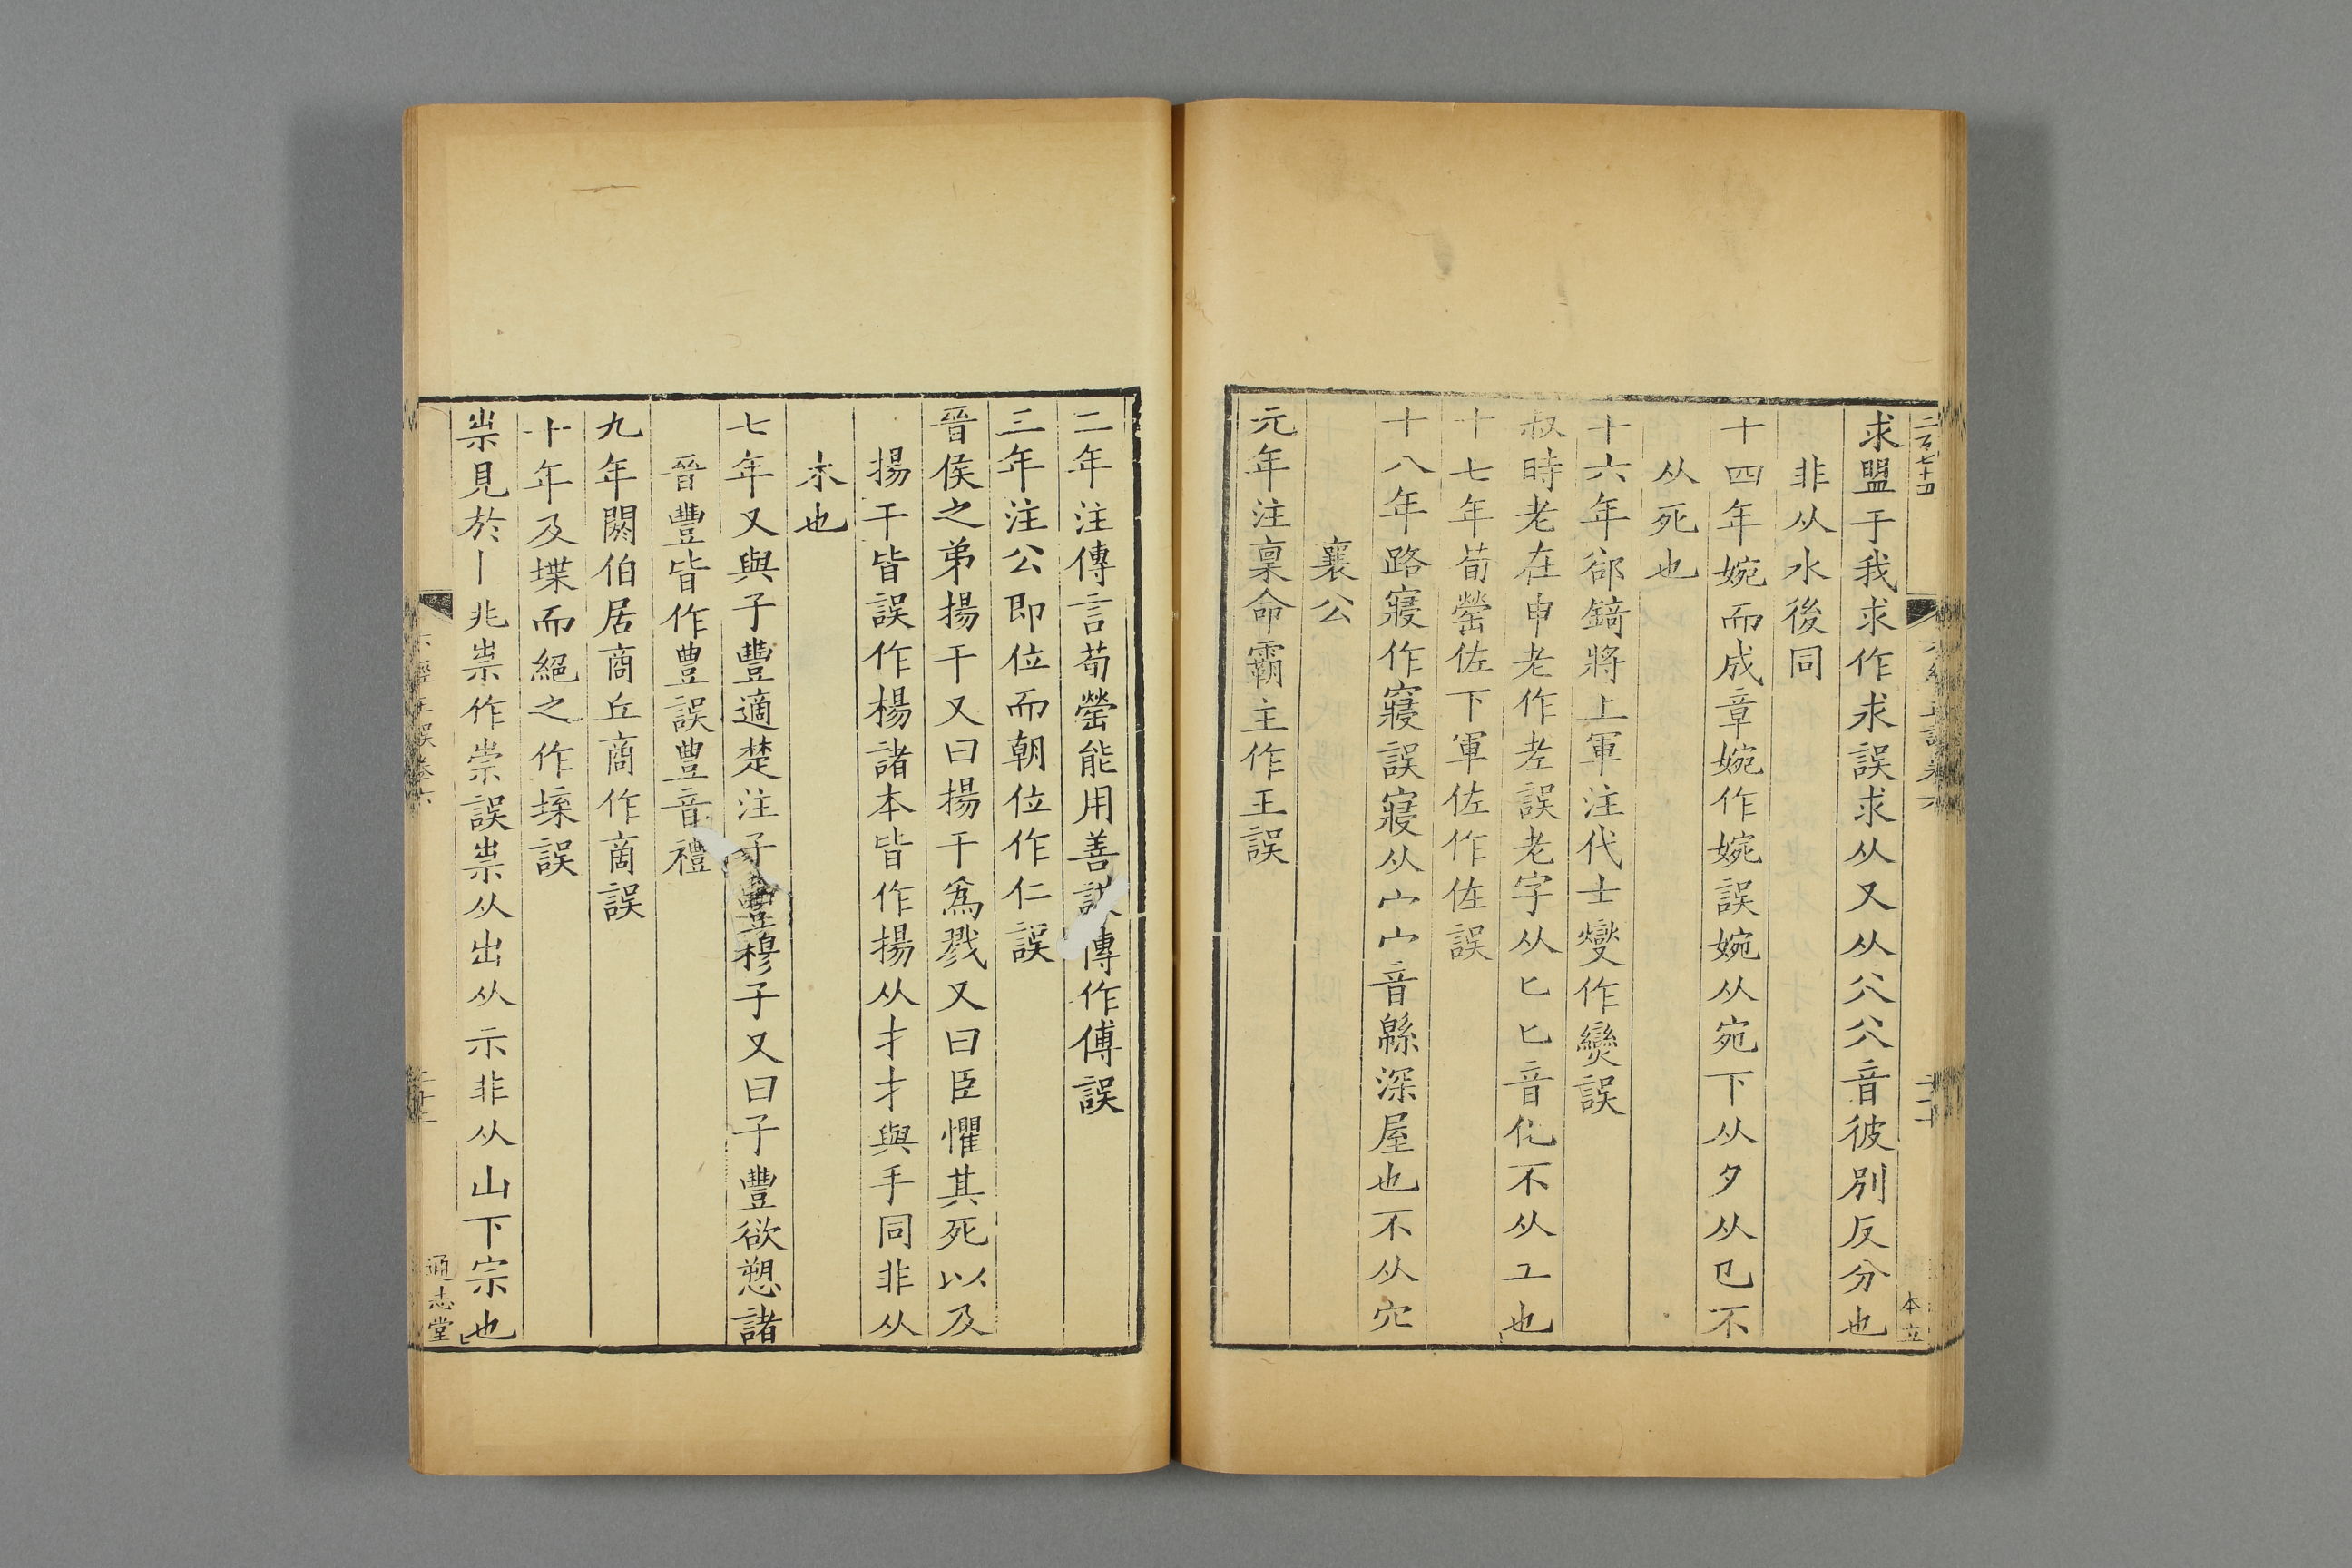 二百七十四
求盟于我求作求誤求从又从㸚㸚音彼別反分也
非从水後同
十四年婉而成章婉作婉誤婉从宛下从夕从㔾不
从死也
十六年郤錡將上軍注代士燮作爕誤
叔時老在申老作老誤老字从匕匕音化不从工也
十七年荀罃佐下軍佐作佐誤
十八年路寢作寢誤寢从宀宀音緜深屋也不从穴
襄公
元年注稟命霸主作王誤
本立
二年注傳言荀罃能用善謀傳作傅誤
三年注公即位而朝位作仁誤
晉侯之弟揚干又曰揚干爲戮又曰臣懼其死以及
揚干皆誤作楊諸本皆作揚从扌扌與手同非从
木也
七年又與子豐適楚注子豐穆子又曰子豐欲愬諸
晉豐皆作豊誤豊音禮
九年閼伯居商丘商作啇誤
十年及堞而絕之作堞誤
祟見於卜兆祟作崇誤祟从出从示非从山下宗也
六經正誤卷六
通志堂